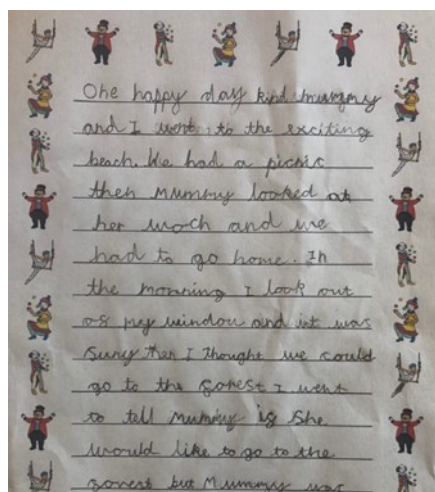 One happy day kind mummy
and I went to the exciting
beach. We had a picnic
then Mummy looked at
her woch and we
had to go home. In
the morning I look out
of my window and it was
suny then I thought we could
go to the forest I went
to tell mummy if she
would like to go to the
forest but Mummy was